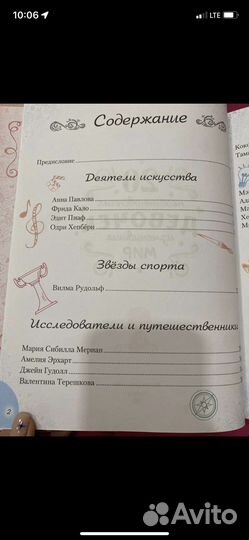 10:06
LTE
Содержание
Предисловие
Деятели искусства
Анна Павлова
Фрида Кало
Эдит Пиаф
Одри Хепбёрн
Звёзды спорта
Вилма Рудольф
Исследователи и путешественники
Мария Сибилла Мериан
Амелия Эрхарт
Джейн Гудолл
Валентина Терешкова
2
Avito